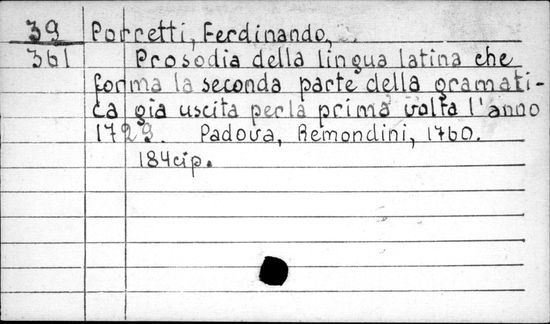 39 Porretti, Ferdinando,
361 Prosodia della lingua latina che
forma la seconda parte della gramati-
ca già uscita per la prima volta l'anno
1729. Padova, Remondini, 1760.
184cip.